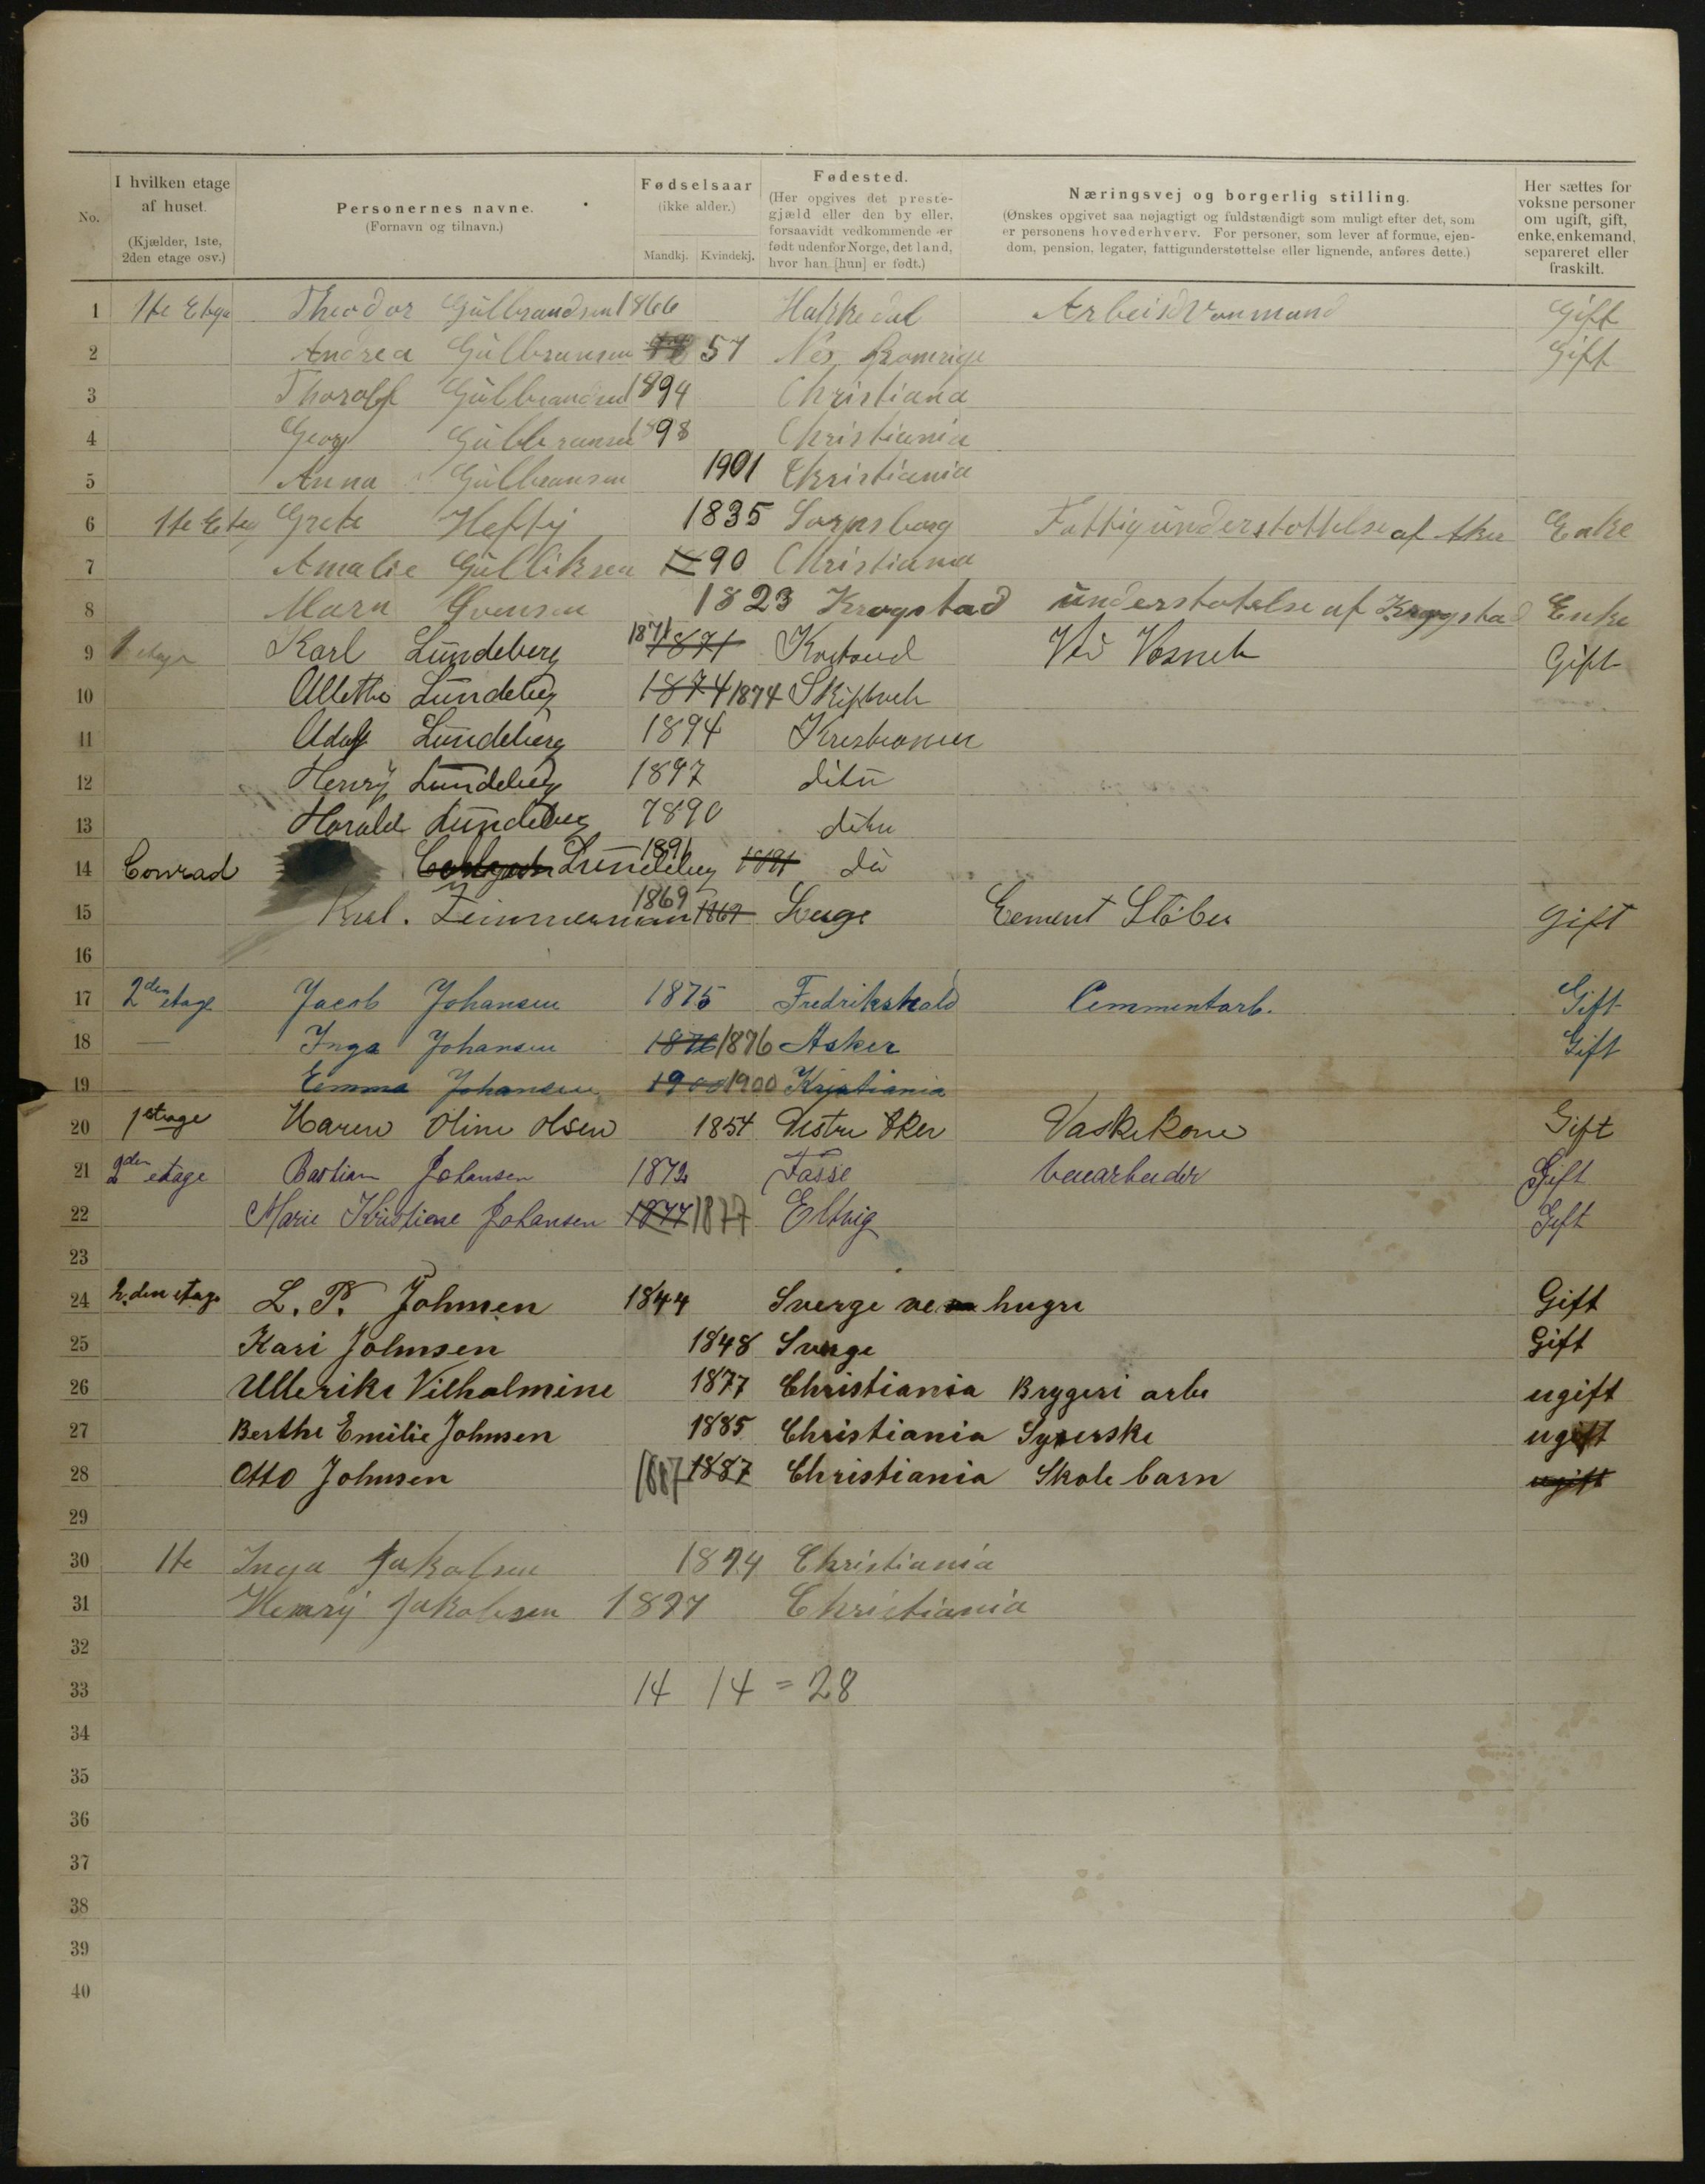 No.
I hvilken etage af huset. (Kjælder, 1ste, 2den etage osv.)
Personernes navne. (Fornavn og tilnavn.)
Fødselsaar (ikke alder.) Mandkj. Kvindekj.
Fødested. (Her opgives det prestegjæld eller den by eller, forsaavidt vedkommende er født udenfor Norge, det land, hvor han [hun] er født.)
Næringsvej og borgerlig stilling. (Ønskes opgivet saa nøjagtigt og fuldstændigt som muligt efter det, som er personens hovederhverv. For personer, som lever af formue, ejendom, pension, legater, fattigunderstøttelse eller lignende, anføres dette.)
Her sættes for voksne personer om ugift, gift, enke, enkemand, separeret eller fraskilt.
1 1te Etage Theodor Gulbrandsen 1866 Hakkedal Gift
2 Andrea Gulbransen 57 Nes Romrige Gift
3 Thoralf Gulbrandsen 1894 Christiana
4 Georg Gulbransen 1898 Christiania
5 Anna Gulbransen 1901 Christiania
6 1te Etag Grete Hefty 1835 Sarpsborg Fattigunderstottelse af Aker Enke
7 Amalie Gulliksen 90 Christiania
8 Maren Svensen 1823 Krogstad understotelse af Krogstad Enke
9 1 etage Karl Lundeberg 1871 1871 Gift
10 Alletha Lundeberg 1874 1874 Skiptvet
11 Adolf Lundeberg 1894 Kristianien
12 Henry Lundeberg 1897 dito
13 Harald Lundeberg 1890 dito
14 Conrad Lundeberg 1891 1891 do
15 Karl. Zimmerman 1869 1869 Sverge Cement Stöber gift
16
17 2den etage Jacob Johansen 1875 Fredrikshald Cemmentarb. Gift
18 — Inga Johansen 1876 1876 Asker Gift
19 Emma Johansen 1900 1900 Kristiania
20 1 etage Maren Oline Olsen 1854 Vestre Aker Vaskekone Gift
21 2den etage Bastian Johansen 1872 Fasse Gift
22 Marie Kristiane Johansen 1877 1877 Gift
23
24 2. den etage L. P. Johnsen 1844 Sverge Gift
25 Kari Johnsen 1848 Sverge Gift
26 Ullerike Vilhalmine 1877 Christiania Brygeri arbe ugift
27 Berthe Emilie Johnsen 1885 Christiania Syerske ugift
28 Otto Johnsen 1887 1887 Christiania Skole barn ugift
29
30 1te Inga Jakobsen 1894 Christiania
31 Henry Jakobsen 1897 Christiania
32
33 14 14 = 28
34
35
36
37
38
39
40